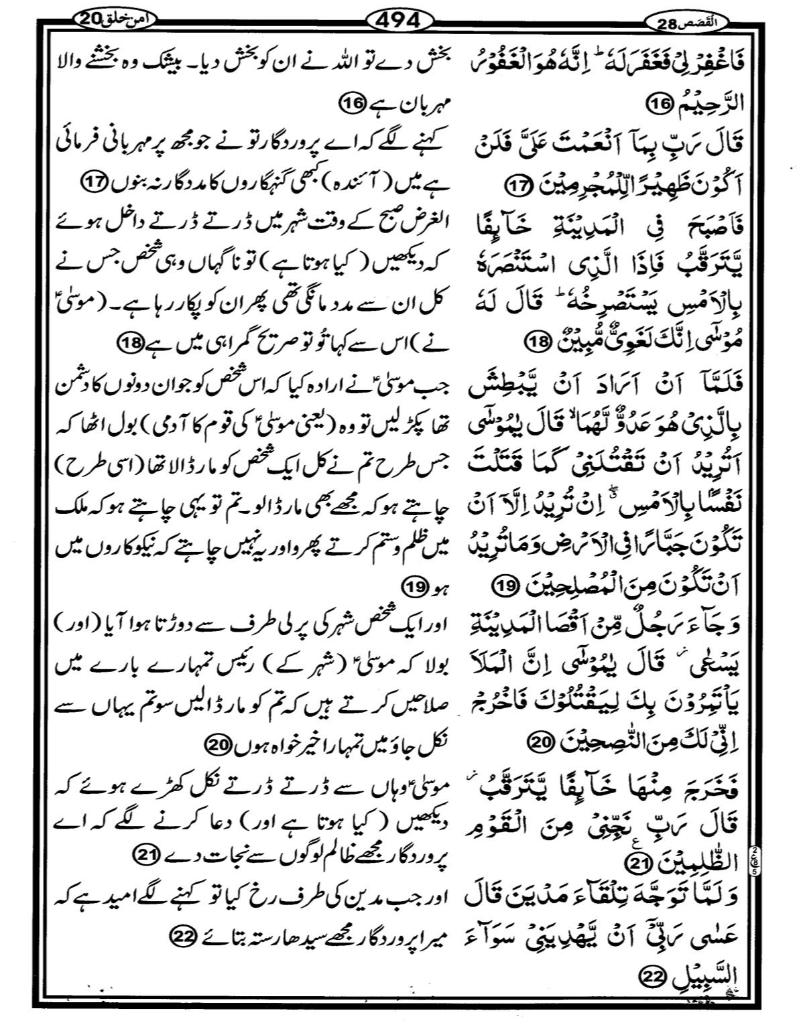 القصص 28
494
امن خلق 20
فَاغۡفِرۡ لِىۡ فَغَفَرَ لَهٗ‌ ؕ اِنَّهٗ هُوَ الۡغَفُوۡرُ
الرَّحِيۡمُ 16
قَالَ رَبِّ بِمَاۤ اَنۡعَمۡتَ عَلَىَّ فَلَنۡ
اَكُوۡنَ ظَهِيۡرًا لِّلۡمُجۡرِمِيۡنَ 17
فَاَصۡبَحَ فِى الۡمَدِيۡنَةِ خَآٮِٕفًا
يَّتَرَقَّبُ فَاِذَا الَّذِى اسۡتَنۡصَرَهٗ
بِالۡاَمۡسِ يَسۡتَصۡرِخُهٗ‌ ؕ قَالَ لَهٗ
مُوۡسٰٓى اِنَّكَ لَغَوِىٌّ مُّبِيۡنٌ 18
فَلَمَّاۤ اَنۡ اَرَادَ اَنۡ يَّبۡطِشَ
بِالَّذِىۡ هُوَ عَدُوٌّ لَّهُمَا ۙ قَالَ يٰمُوۡسٰٓى
اَتُرِيۡدُ اَنۡ تَقۡتُلَنِىۡ كَمَا قَتَلۡتَ
نَفۡسًۢا بِالۡاَمۡسِ ‌ۖ اِنۡ تُرِيۡدُ اِلَّاۤ اَنۡ
تَكُوۡنَ جَبَّارًا فِى الۡاَرۡضِ وَمَا تُرِيۡدُ
اَنۡ تَكُوۡنَ مِنَ الۡمُصۡلِحِيۡنَ 19
وَجَآءَ رَجُلٌ مِّنۡ اَقۡصَا الۡمَدِيۡنَةِ
يَسۡعٰى قَالَ يٰمُوۡسٰٓى اِنَّ الۡمَلَاَ
يَاۡتَمِرُوۡنَ بِكَ لِيَـقۡتُلُوۡكَ فَاخۡرُجۡ
اِنِّىۡ لَـكَ مِنَ النّٰصِحِيۡنَ 20
فَخَرَجَ مِنۡهَا خَآٮِٕفًا يَّتَرَقَّبُ‌
قَالَ رَبِّ نَجِّنِىۡ مِنَ الۡقَوۡمِ
الظّٰلِمِيۡنَ 21
وَلَـمَّا تَوَجَّهَ تِلۡقَآءَ مَدۡيَنَ قَالَ
عَسٰى رَبِّىۡۤ اَنۡ يَّهۡدِيَنِىۡ سَوَآءَ
السَّبِيۡلِ 22
بخش دے تو اللہ نے ان کو بخش دیا۔ بیشک وہ بخشنے والا
مہربان ہے 16
کہنے لگے کہ اے پروردگار تو نے جو مجھ پر مہربانی فرمائی
ہے میں (آئندہ) کبھی گنہگاروں کا مددگار نہ بنوں 17
الغرض صبح کے وقت شہر میں ڈرتے ڈرتے داخل ہوئے
کہ دیکھیں (کیا ہوتا ہے) تو ناگہاں وہی شخص جس نے
کل ان سے مدد مانگی تھی پھر ان کو پکار رہا ہے۔ (موسیٰؑ
نے) اس سے کہا تُو تو صریح گمراہی میں ہے 18
جب موسیٰؑ نے ارادہ کیا کہ اس شخص کو جو ان دونوں کا دشمن
تھا پکڑ لیں تو وہ (یعنی موسیٰؑ کی قوم کا آدمی) بول اٹھا کہ
جس طرح تم نے کل ایک شخص کو مار ڈالا تھا (اسی طرح)
چاہتے ہو کہ مجھے بھی مار ڈالو۔ تم تو یہی چاہتے ہو کہ ملک
میں ظلم و ستم کرتے پھرو اور یہ نہیں چاہتے کہ نیکوکاروں میں
ہو 19
اور ایک شخص شہر کی پرلی طرف سے دوڑتا ہوا آیا (اور)
بولا کہ موسیٰؑ (شہر کے) رئیس تمہارے بارے میں
صلاحیں کرتے ہیں کہ تم کو مار ڈالیں سو تم یہاں سے
نکل جاؤ میں تمہارا خیر خواہ ہوں 20
موسیٰؑ وہاں سے ڈرتے ڈرتے نکل کھڑے ہوئے کہ
دیکھیں (کیا ہوتا ہے اور) دعا کرنے لگے کہ اے
پروردگار مجھے ظالم لوگوں سے نجات دے 21
اور جب مدین کی طرف رخ کیا تو کہنے لگے امید ہے کہ
میرا پروردگار مجھے سیدھا رستہ بتائے 22